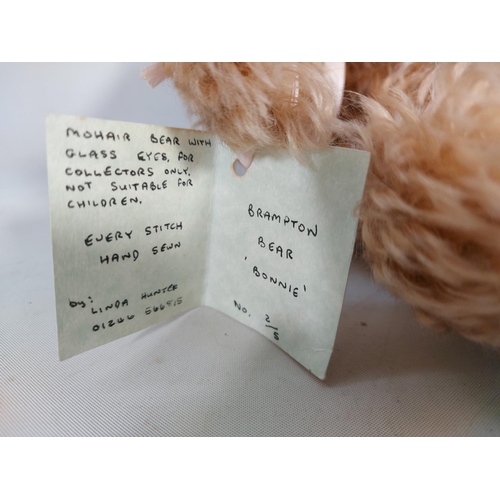 MOHAIR BEAR WITH
GLASS EYES, FOR
COLLECTORS ONLY.
NOT SUITABLE FOR
CHILDREN.
EVERY STITCH
HAND SEWN
by:
LINDA HUNTER
01246
BRAMPTON
BEAR
'BONNIE'
No. 2/5